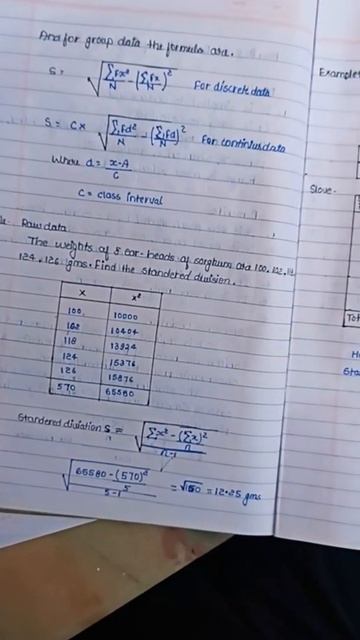 And for group data the formula are.
S = √ Σfx²/N - (Σfx/N)² For discrete data
S = C x √ Σfd²/N - (Σfd/N)² For continius data
Where d = x-A/C
C = class interval
Raw data
The weights of 5 ear-heads of sorghum are 100, 102, 11
124, 126 gms. Find the standered diviation.
x x²
100 10000
102 10404
118 13924
124 15376
126 15876
570 65580
Standered diviation S = √ Σx² - (Σx)²/n / n-1
√ 65580 - (570)²/5 / 5-1 = √150 = 12.25 gms
Example
Slove-
Tot
Sta